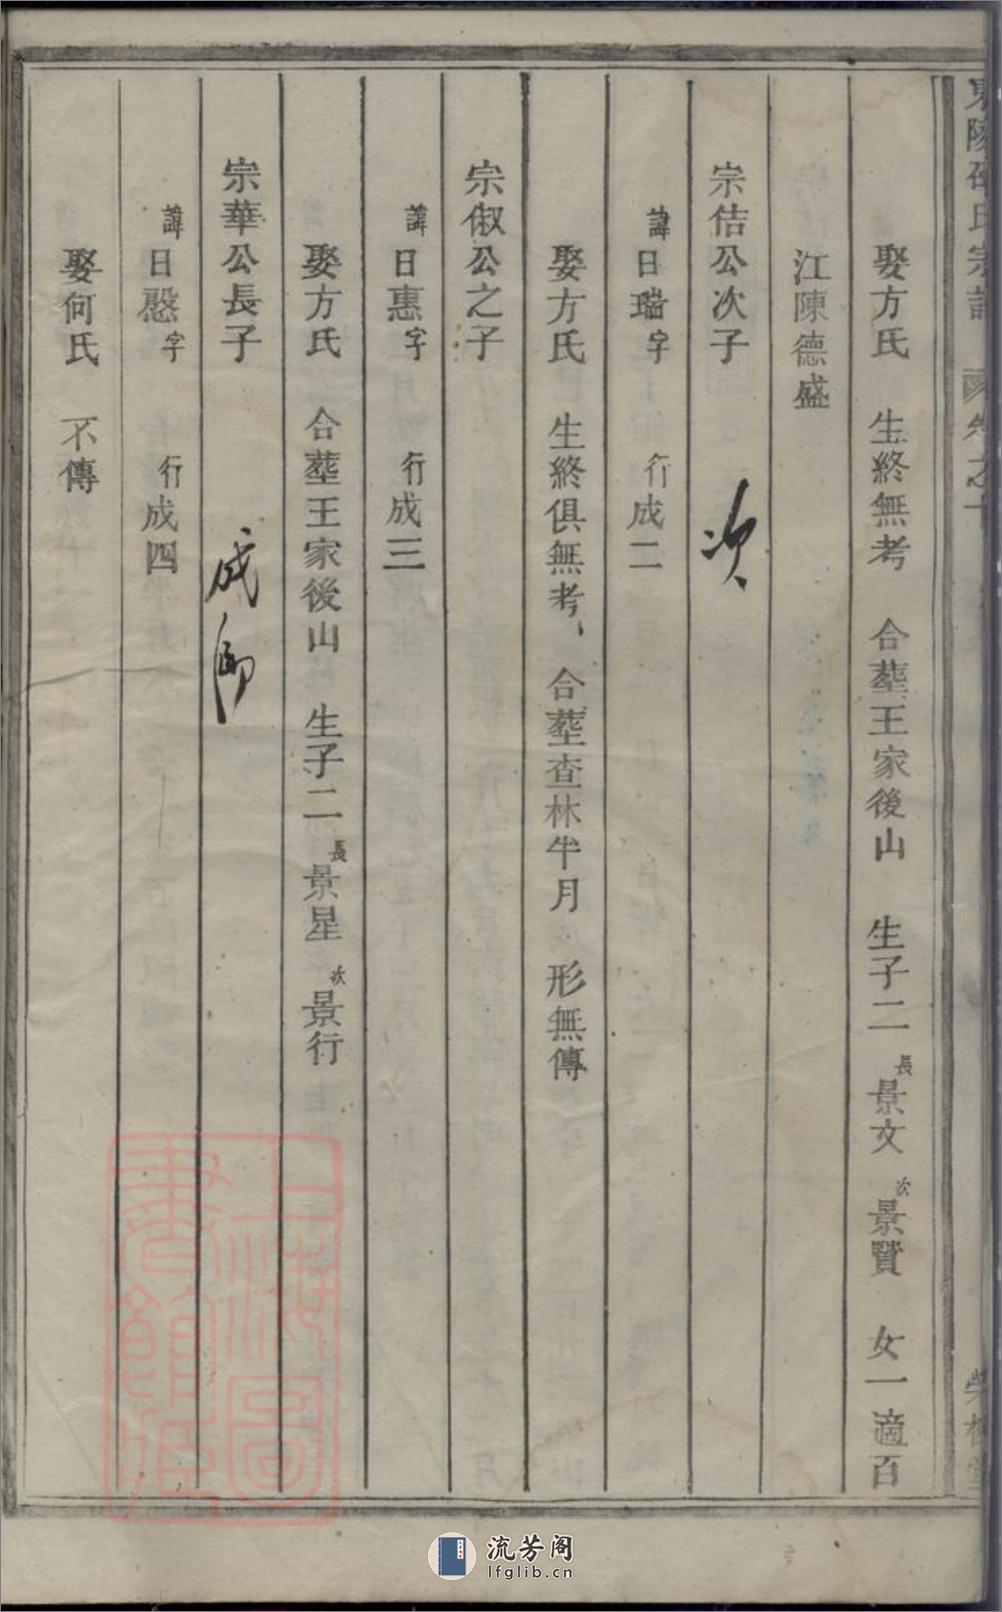 娶方氏 生終無考 合塟王家後山 生子二 長景文 次景賢 女一適百
江陳德盛
宗佶公次子 次
諱日瑞字 行成二
娶方氏 生終俱無考、合塟查林半月 形無傳
宗俶公之子
諱日惠字 行成三
娶方氏 合塟王家後山 生子二 長景星 次景行
宗華公長子
諱日慇字 行成四
娶何氏 不傳
上海圖書館藏
流芳阁
lfglib.cn